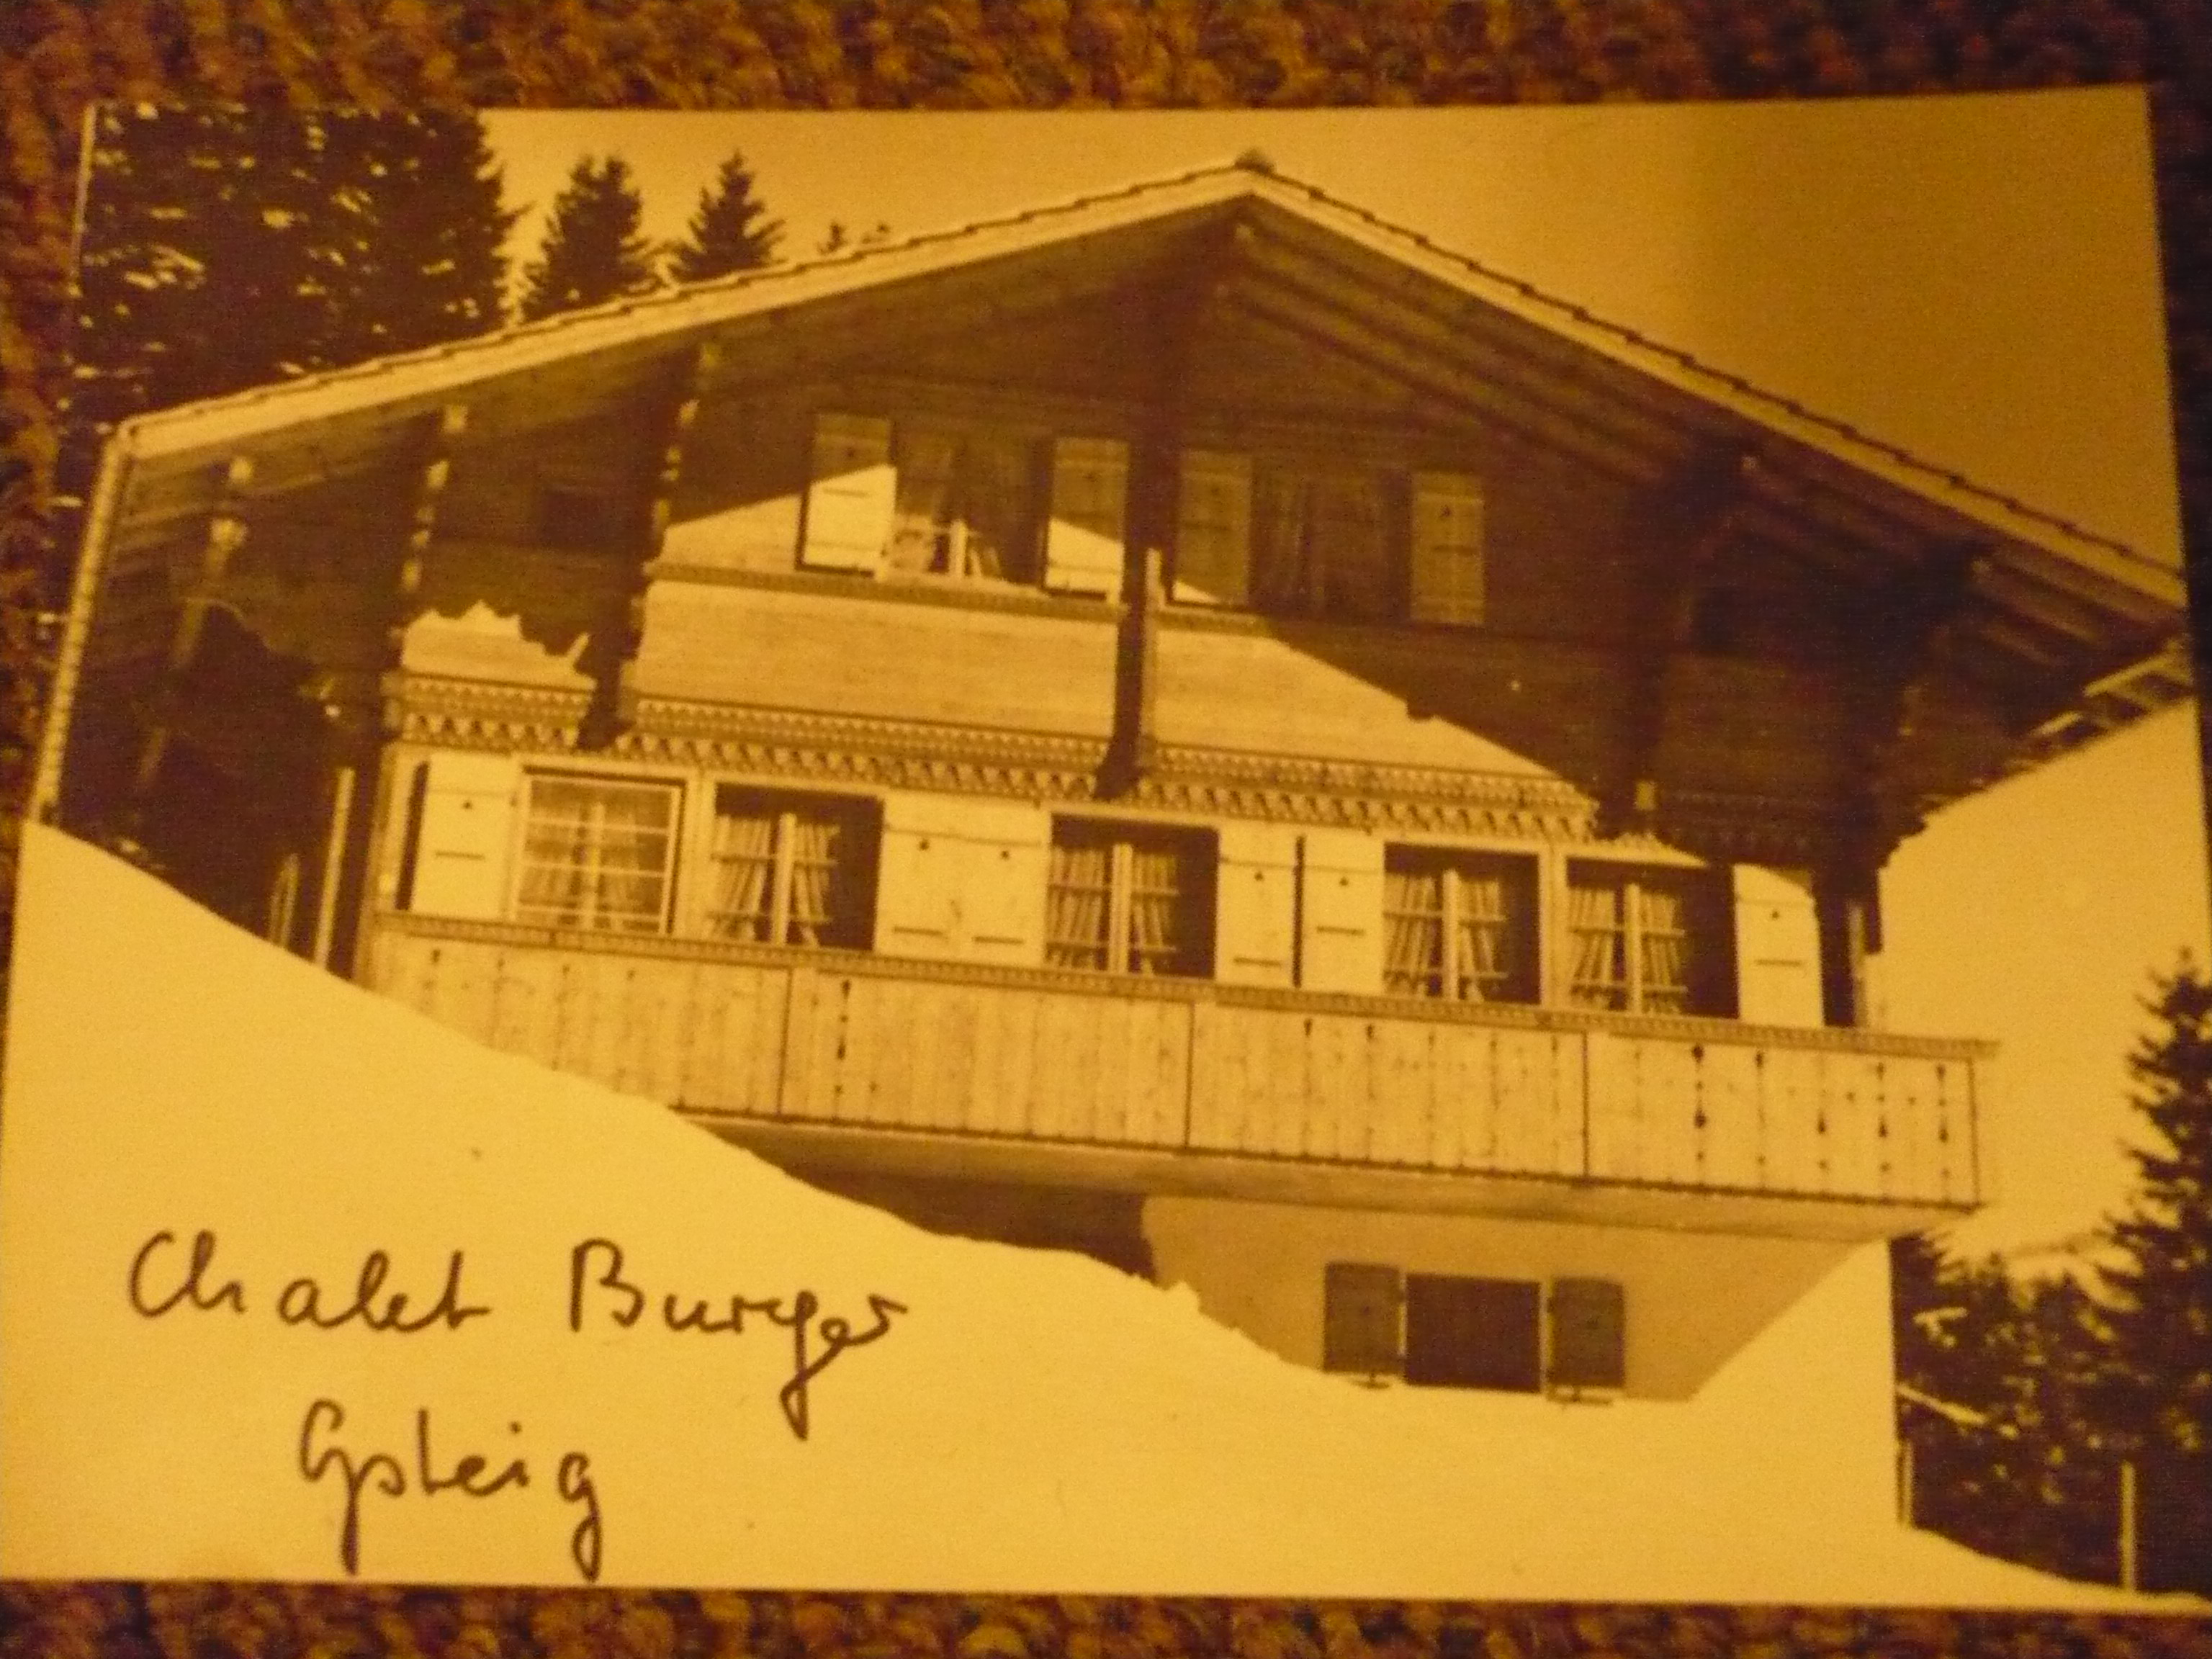 Chalet Burger
Gsteig